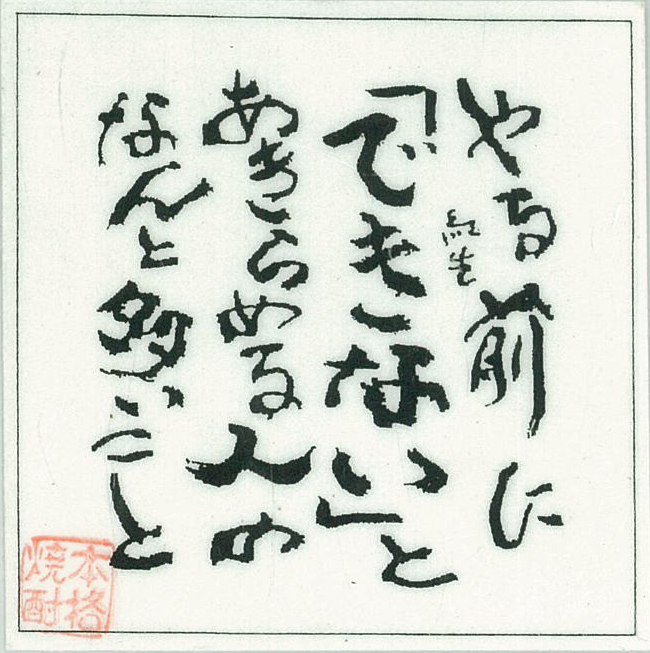 やる前に
「できない」と
あきらめる人の
なんと多いこと
本格
焼酎